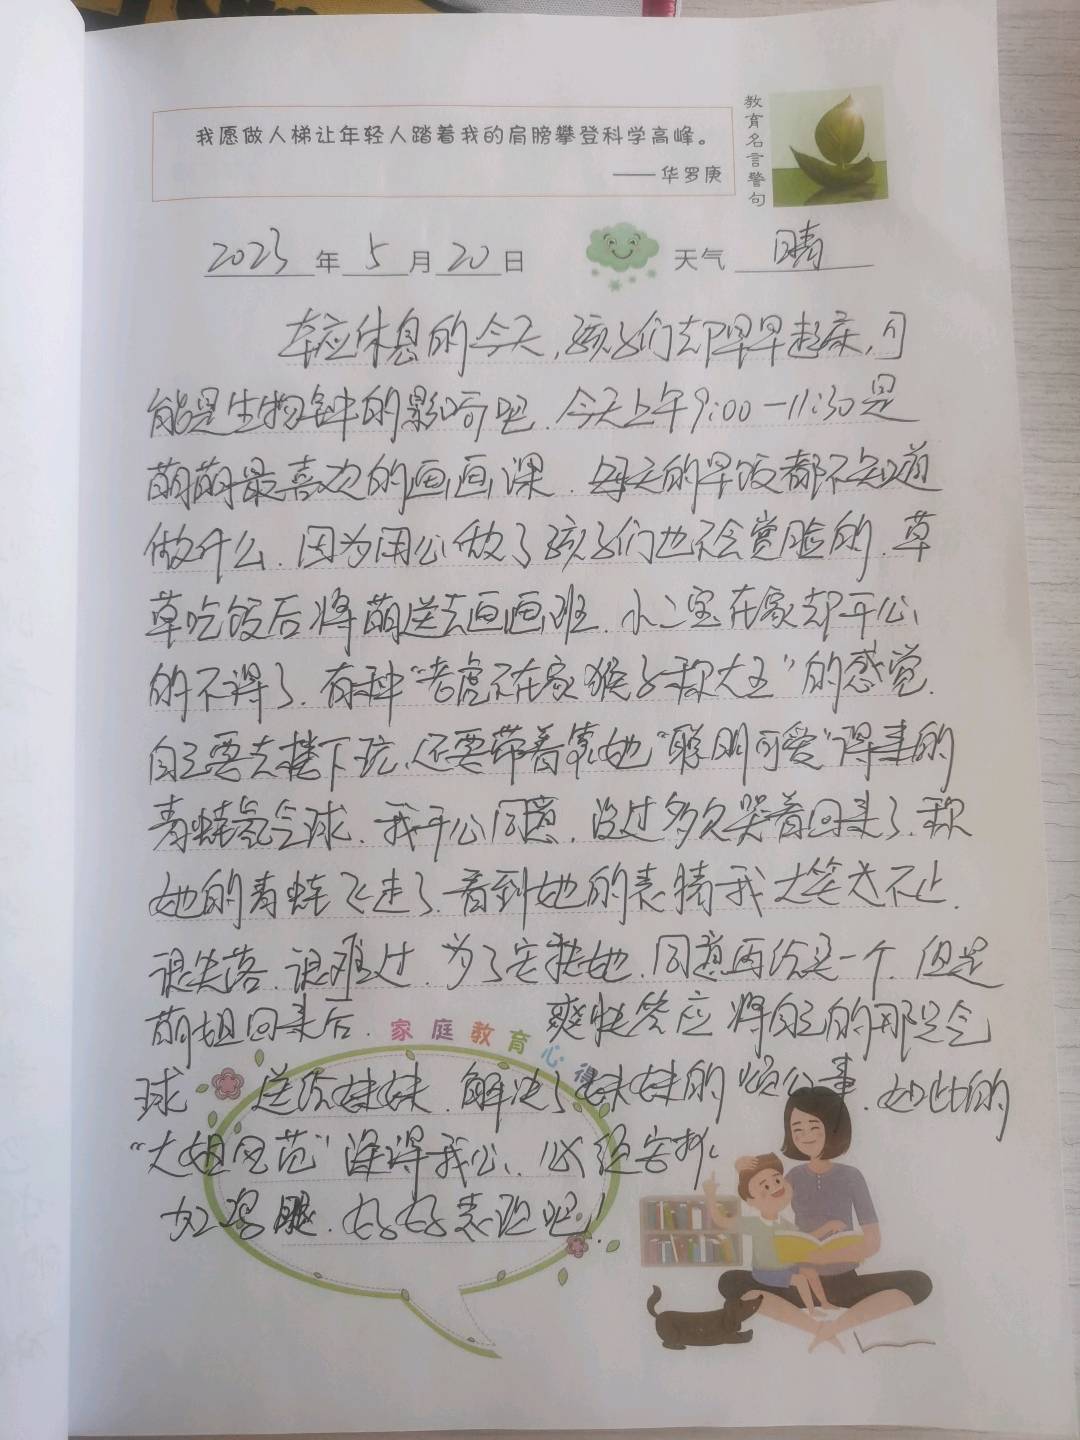 我愿做人梯让年轻人踏着我的肩膀攀登科学高峰。
——华罗庚
教育名言警句
2023年5月20日 天气 晴
本应休息的今天,孩子们却早早起床,可
能是生物钟的影响吧.今天上午9:00—11:30是
萌萌最喜欢的画画课.每天的早饭都不知道
做什么.因为用心做了孩子们也不会赏脸的.草
草吃饭后将萌送去画画班.小二宝在家却开心
的不得了.有种“老虎不在家猴子称大王”的感觉.
自己要去楼下玩、还要带着她“聪明可爱”得来的
青蛙氢气球.我开心同意.没过多久哭着回来了.称
她的青蛙飞走了.看到她的表情我大笑不止.
很失落.很难过.为了安抚她.同意再给买一个.但是
萌姐回来后.爽快答应将自己的那只气
家庭教育心得
球送给妹妹.解决了妹妹的烦心事.如此的
“大姐风范”深得我心、
加鸡腿.好好表现吧!